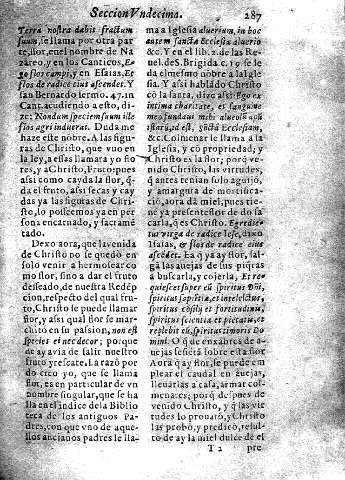 Seccion Vndecima. 287
Terra nostra dabit fructum
suum, se llama por otra par
te, flor, en el nombre de Na
zareo, y en los Canticos, E-
go flos campi, y en Esaias, Et
flos de radice eius ascendet. Y
San Bernardo ser mo. 47. in
Cant. acudiendo a esto, di-
ze: Nondum speciem suum ille
flos agri induerat. Duda me
haze este nombre. A las figu-
ras de Christo, que vuo en
la ley, a essas llamara yo flo
res, y a Christo, Fruto: pues
assi como cayda la flor, q̃-
da el fruto, assi secas y cay
das ya las figuras de Chri-
sto, lo posseemos ya en per
sona encarnado, y sacramẽ
tado.
Dexo aora, que la venida
de Christo no se quedò en
solo venir a hermosear co
mo flor, sino a dar el fruto
desseado, de nuestra Redẽp
cion, respecto del qual fru-
to, Christo se puede llamar
flor, y assi qual flor se mar-
chitò en su passion, non est
species ei nec decor; porque
de ay auia de salir nuestro
fruto y rescate. La razõ por
do creo yo, que se llama
flor, es en particular de vn
nombre singular, que se ha
lla en el indice dela Biblio
teca de los antiguos Pa-
dres, con que vno de aque-
llos ancianos padres le lla-
ma a Iglesia aluerium, in hoc
autem sancta Ecclesia aluerio
&c. Y en el lib. 2. de las Reue.
de S. Brigida. c. 19. se le
da el mesmo nõbre a la Igle
sia. Y assi hablado Christo
cõ la santa, dize assi: Ego ex
intima charitate, et sanguine
meo fundaui mihi alueoli
&c. Colmenar le llama a la
Iglesia, y cõ propriedad; y
Christo es la flor; porq̃ ve-
nido Christo, las virtudes,
q̃ antes tenian solo agurio,
y amargura de mortifica-
ció, aora dã miel, pues tie-
ne ya presente flor de do sa
carla, q̃ es Christo. Egredie
tur virga de radice Iesse, dixo
Isaias, & flos de radice eius
ascẽdet. Ea q̃ ya ay flor, sal-
gã las auejas de sus piqras
a buscarla, y cojerla, Et re-
quiescet super eũ spiritus Dñi,
spiritus sapiẽtiæ, et intellectus,
spiritus cõsilij et fortitudinis,
spiritus scientiæ et pietatis, et
replebit eũ, spiritus timoris Do
mini. O q̃ de enxabres de a-
uejas se sẽtò sobre esta flor
Aora q̃ ay flor, se puede em
plear el caudal en auejas,
lleuarlas a casa, armar col-
menares; porq̃ despues de
venido Christo, y q̃ las vir
tudes lo prouarõ, y Christo
las probò, y predicò, resul-
tò de ay la miel dulce de el
T 2 pre